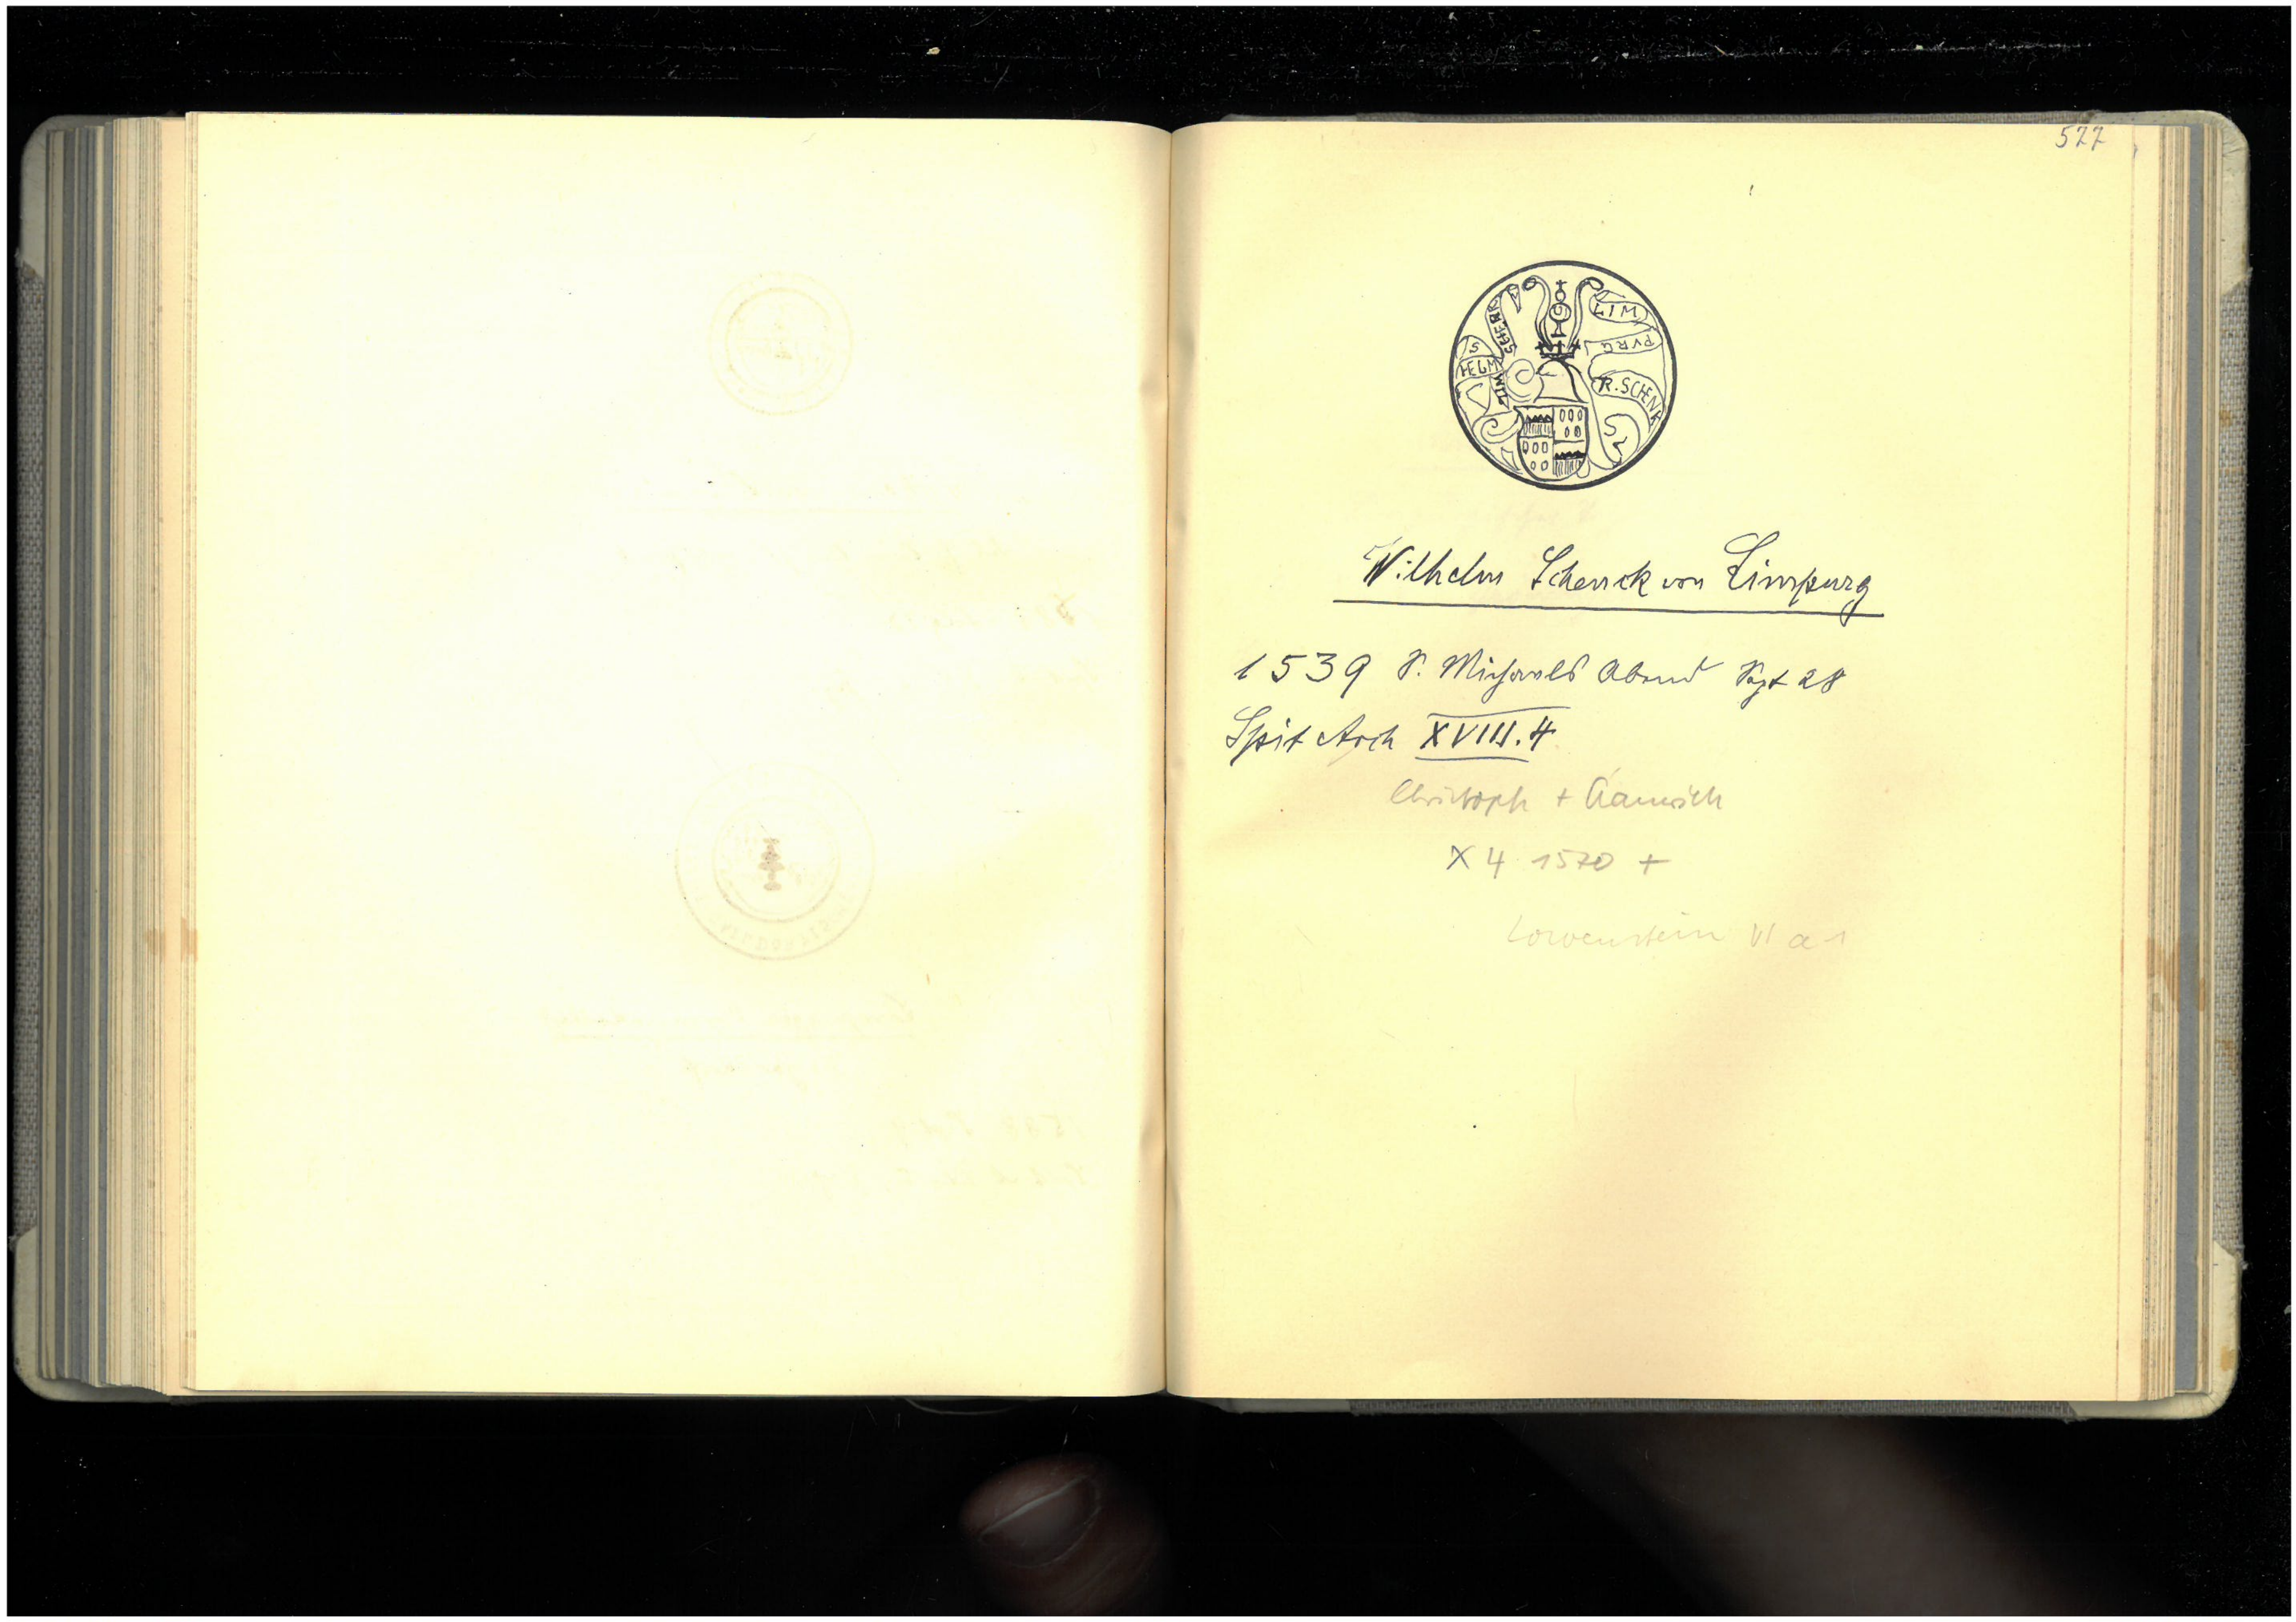 577
S
HELM
WIL
SCHERD
LIM
PVRG
R. SCHENK
Wilhelm Schenck von Limpurg
1539 S. Michaels Abend Sept 28
Spit Arch XVIII.4
Christoph + Heinrich
X 4 1570 +
Löwenstein VI a 1